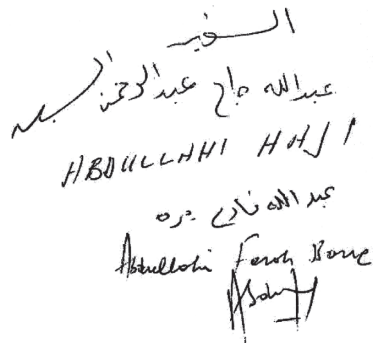 السفير
عبدالله حاج عبدالرحمن
ABDULLAHI HAJI
عبدالله فارح بره
Abdullahi Farah Barre